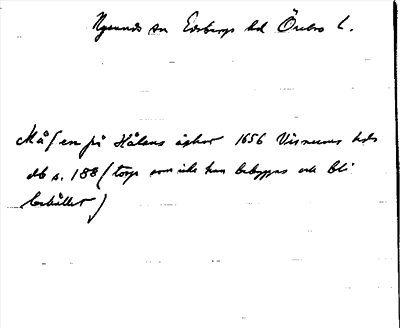 Nysunds sn Edsbergs hd Örebro l.
Må/en på Hålens ägher 1656 Visnums hds
db s. 188 (torp som icke kan bebygges och bli
behållet)